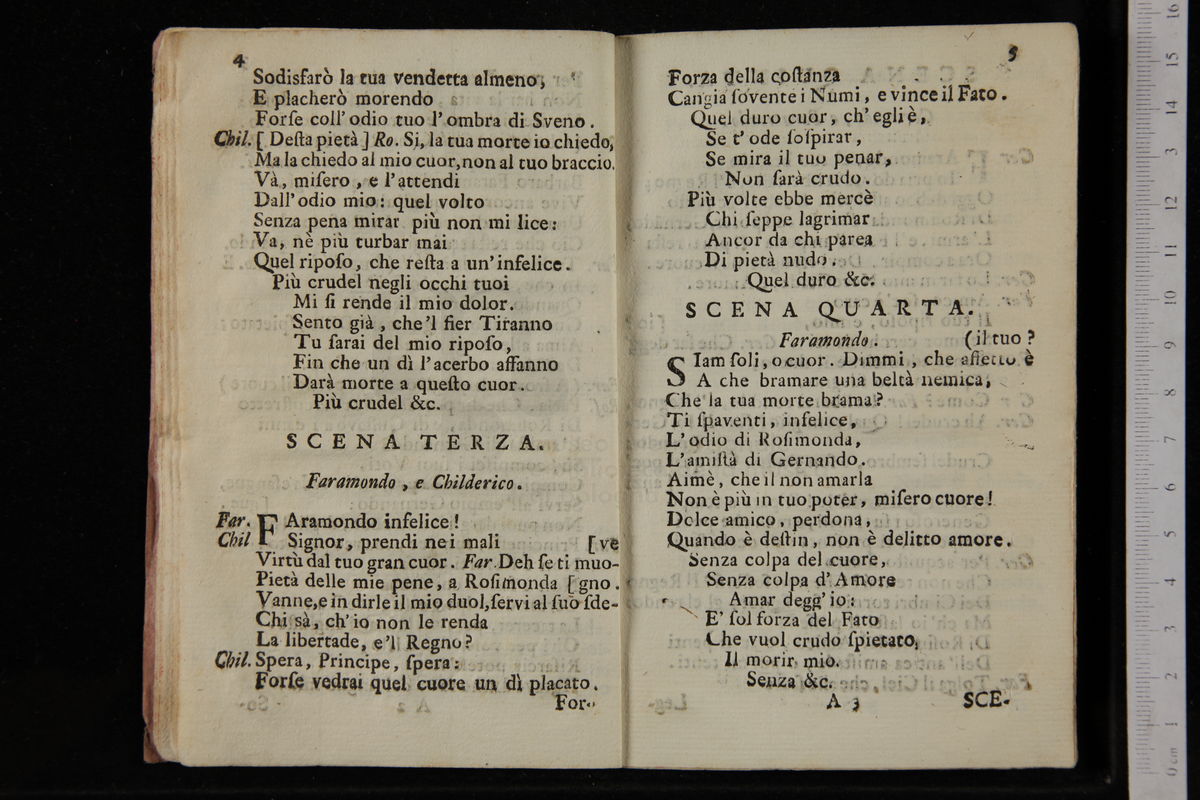 4
Sodisfarò la tua vendetta almeno,
E placherò morendo
Forſe coll' odio tuo l'ombra di Sveno.
Chil. [ Deſta pietà ] Ro. Si, la tua morte io chiedo,
Ma la chiedo al mio cuor, non al tuo braccio.
Và, miſero, e l'attendi
Dall'odio mio: quel volto
Senza pena mirar più non mi lice:
Va, nè più turbar mai
Quel ripoſo, che reſta a un'infelice.
Più crudel negli occhi tuoi
Mi ſi rende il mio dolor.
Sento già, che'l fier Tiranno
Tu ſarai del mio ripoſo,
Fin che un dì l'acerbo affanno
Darà morte a queſto cuor.
Più crudel &c.
SCENA TERZA.
Faramondo, e Childerico.
Far. FAramondo infelice!
Chil Signor, prendi nei mali [ve
Virtù dal tuo gran cuor. Far. Deh ſe ti muo-
Pietà delle mie pene, a Roſimonda [gno.
Vanne, e in dirle il mio duol, ſervi al ſuo ſde-
Chi sà, ch'io non le renda
La libertade, e'l Regno?
Chil. Spera, Principe, ſpera:
Forſe vedrai quel cuore un dì placato.
For-
5
Forza della coſtanza
Cangia ſovente i Numi, e vince il Fato.
Quel duro cuor, ch'egli è,
Se t'ode ſoſpirar,
Se mira il tuo penar,
Non ſarà crudo.
Più volte ebbe mercè
Chi ſeppe lagrimar
Ancor da chi parea
Di pietà nudo.
Quel duro &c.
SCENA QUARTA.
Faramondo. (il tuo?
SIam ſoli, o cuor. Dimmi, che affetto è
A che bramare una beltà nemica,
Che la tua morte brama?
Ti ſpaventi, infelice,
L'odio di Roſimonda,
L'amiſtà di Gernando.
Aimè, che il non amarla
Non è più in tuo poter, miſero cuore!
Dolce amico, perdona,
Quando è deſtin, non è delitto amore.
Senza colpa del cuore,
Senza colpa d'Amore
Amar degg'io:
E' ſol forza del Fato
Che vuol crudo ſpietato,
Il morir mio.
Senza &c.
A 3 SCE-